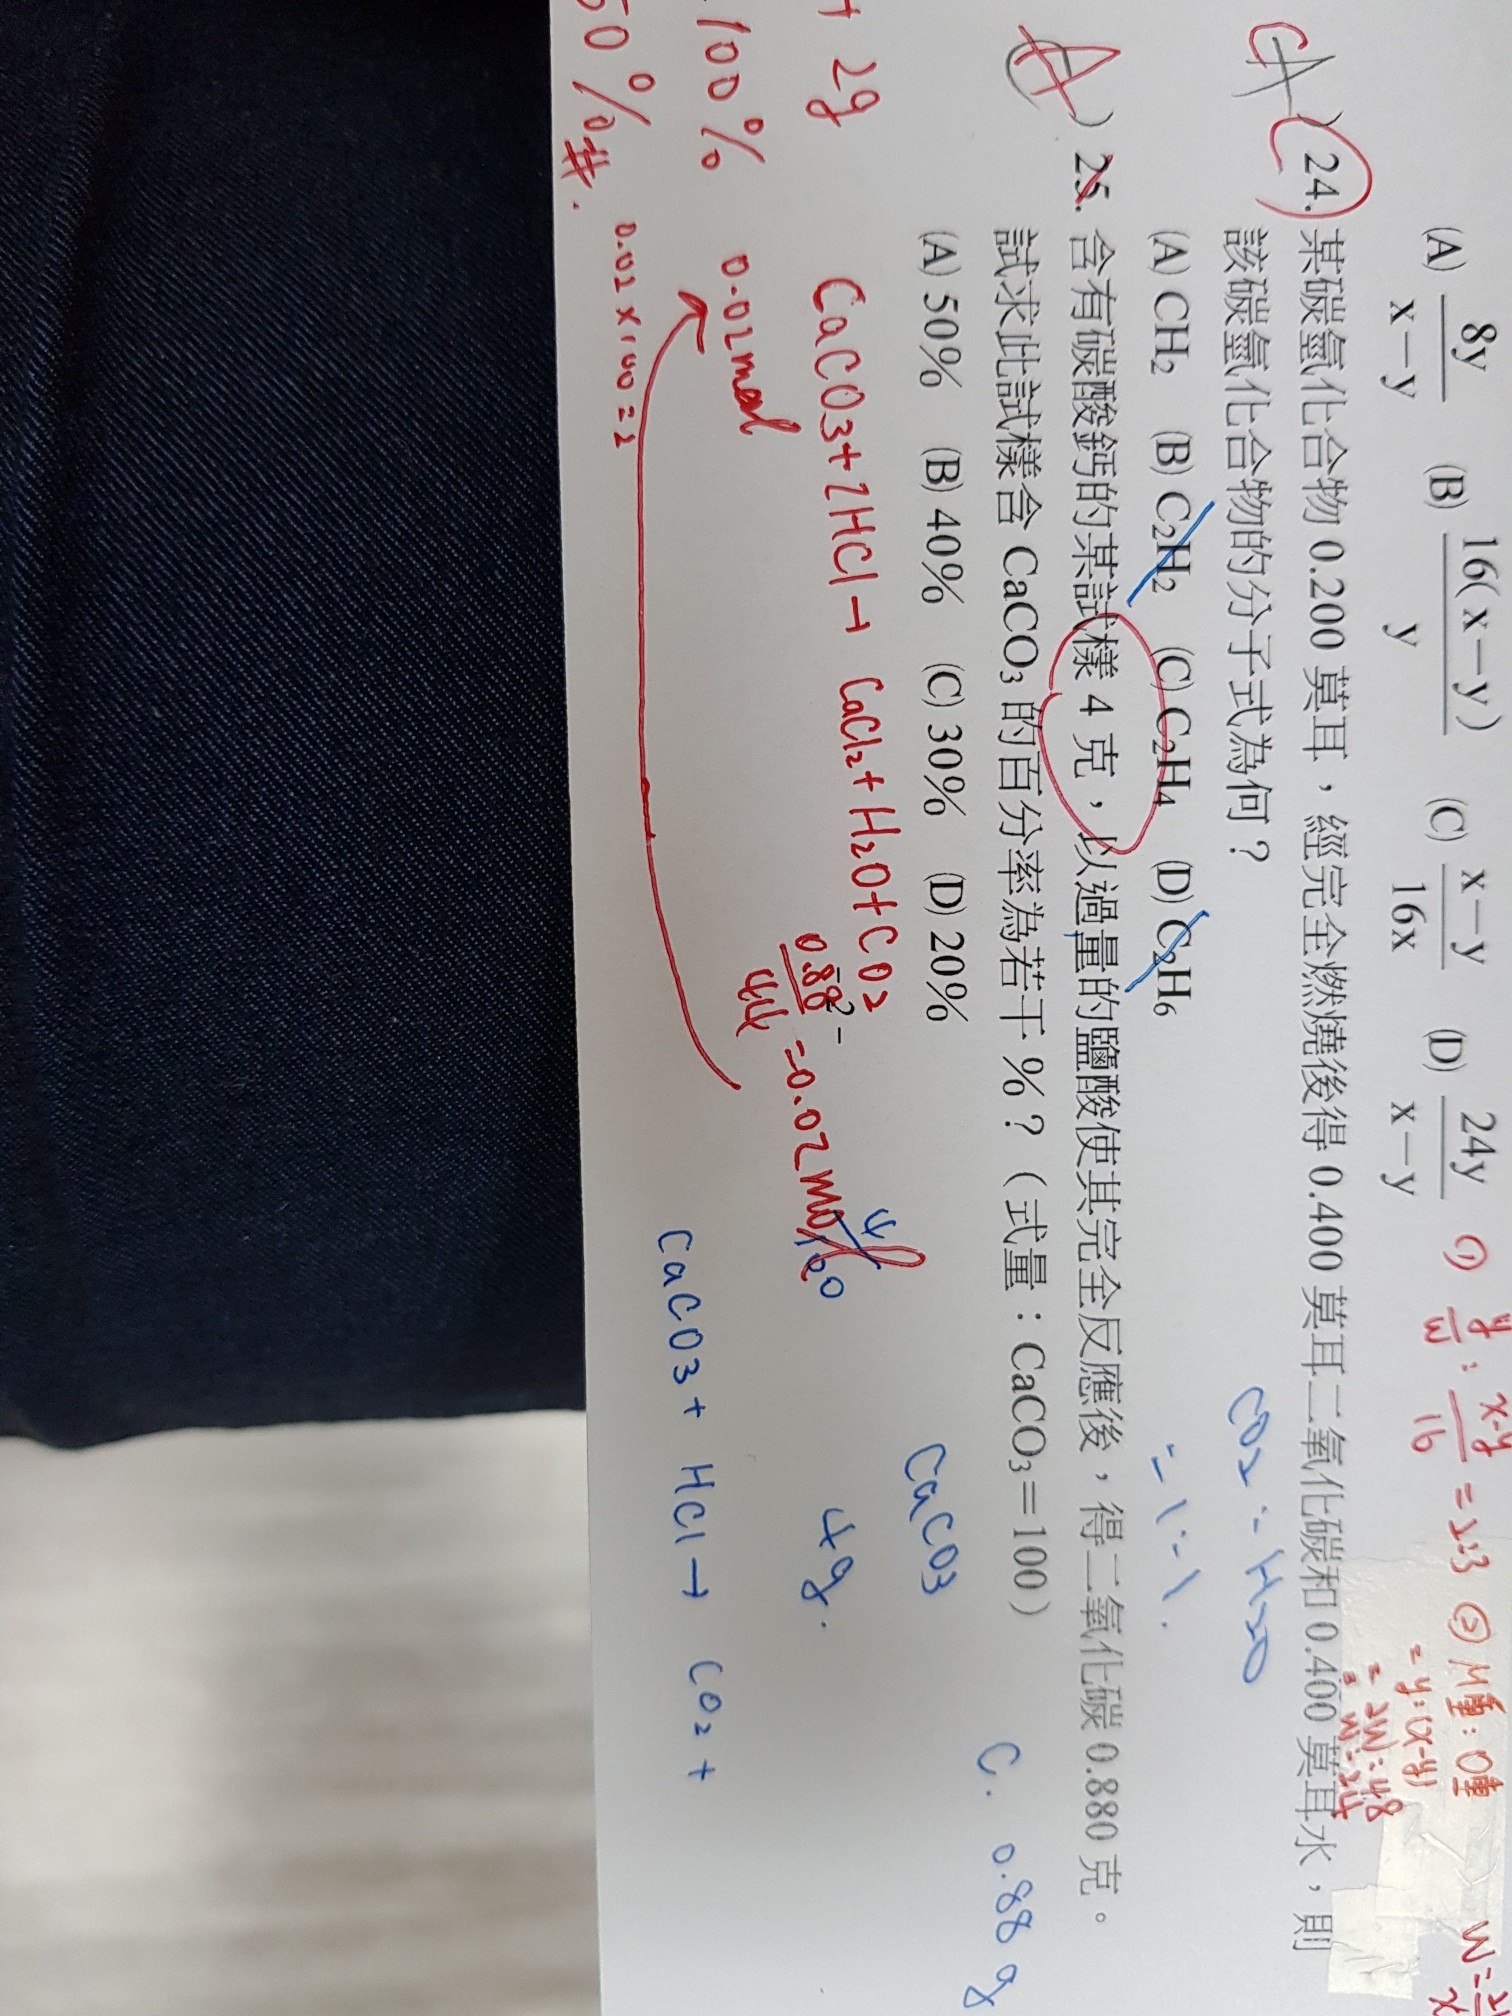 (A) 8y/x－y (B) 16(x－y)/y (C) x－y/16x (D) 24y/x－y
① y/M : x-y/16 = 2:3 ② M重:O重
= y:(x-y)
= 2M:48
= M:24
24. 某碳氫化合物 0.200 莫耳，經完全燃燒後得 0.400 莫耳二氧化碳和 0.400 莫耳水，則
該碳氫化合物的分子式為何？
CO2 : H2O
= 1 : 1.
(A) CH₂ (B) C₂H₂ (C) C₂H₄ (D) C₂H₆
A ) 25. 含有碳酸鈣的某試樣 4 克，以過量的鹽酸使其完全反應後，得二氧化碳 0.880 克。
試求此試樣含 CaCO₃ 的百分率為若干 %？（式量：CaCO₃＝100）
C. 0.88g
(A) 50% (B) 40% (C) 30% (D) 20%
CaCO3
4g.
2g
CaCO3+2HCl→CaCl2+H2O+CO2
0.88/44 = 0.02mol
4/100
100%
0.02mol
50%#.
0.02×100=2
CaCO3+ HCl→ CO2 +